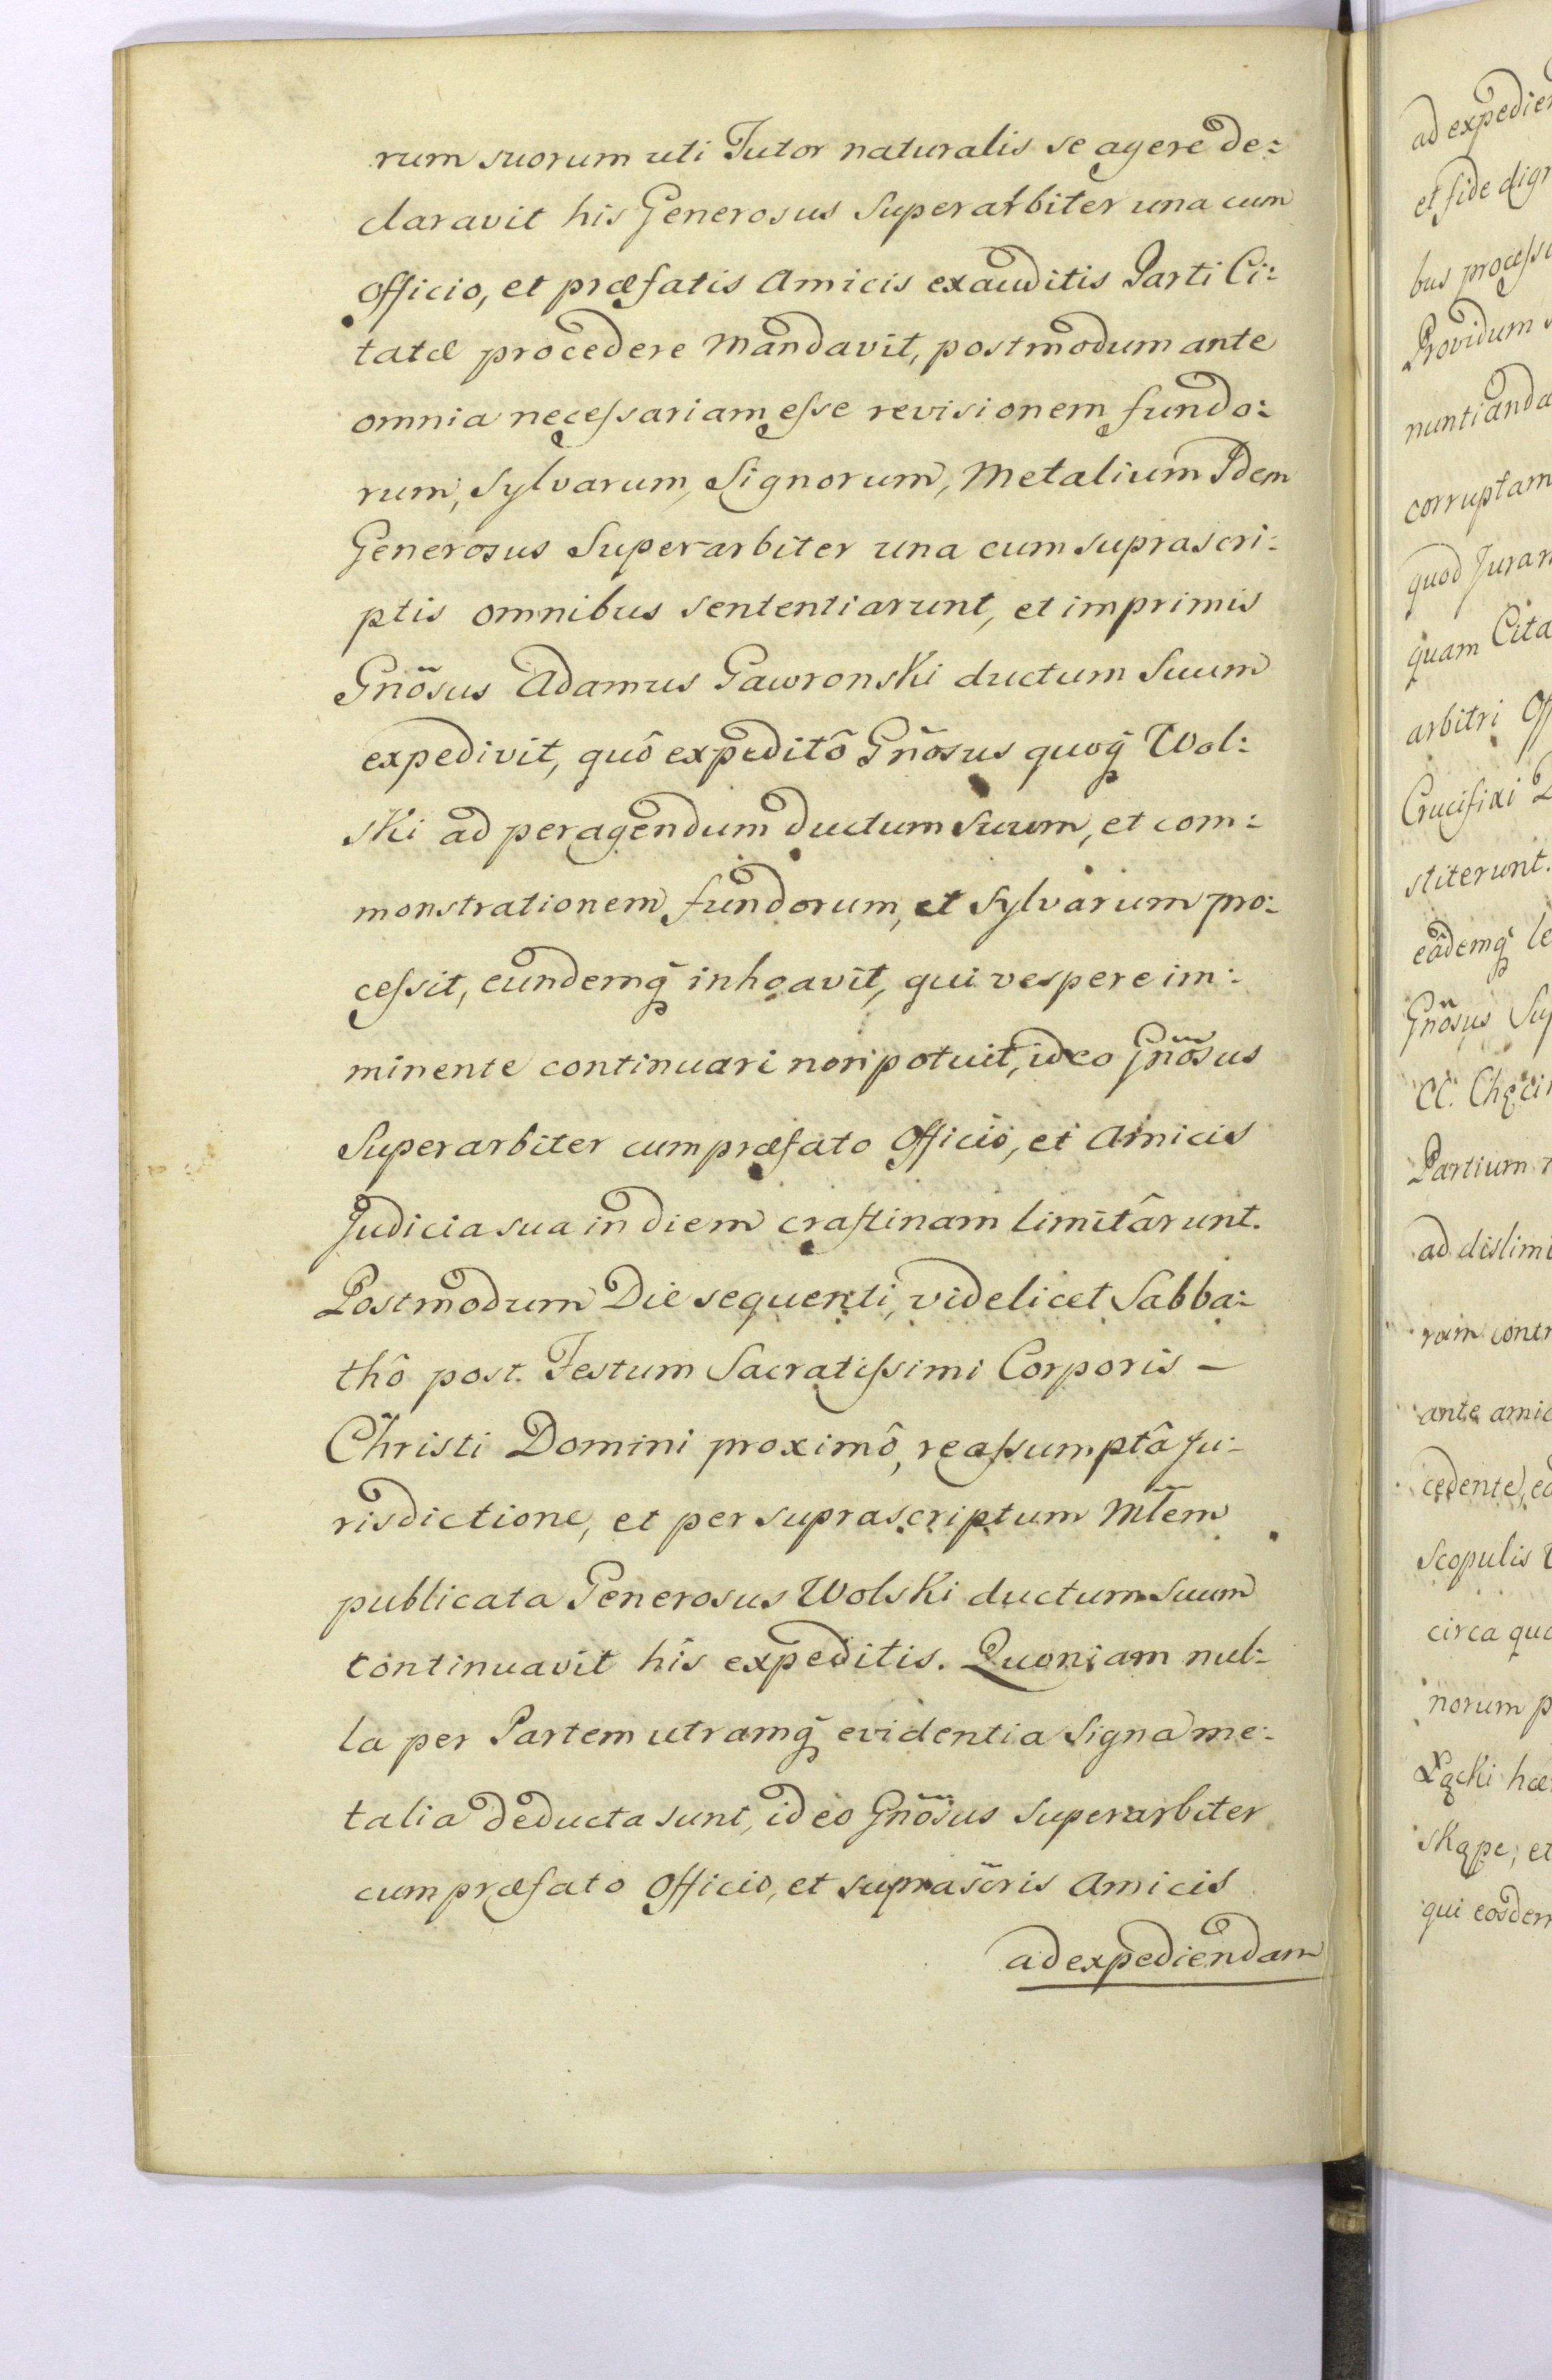 rum suorum uti Tutor naturalis se agere de:
claravit his Generosus Superarbiter una cum
Officio, et præfatis Amicis exauditis Parti Ci:
tatæ procedere Mandavit, postmodum ante
omnia necessariam esse revisionem fundo:
rum, Sylvarum, Signorum, Metalium Idem
Generosus Superarbiter una cum suprascri:
ptis omnibus sententiarunt, et imprimis
Gnosus Adamus Gawronski ductum Suum
expedivit, quô expeditô Gnosus quoq Wol:
ski ad peragendum ductum Suum, et com:
monstrationem fundorum, et Sylvarum pro:
cessit, eundemq inhoavit, qui vespere im:
minente continuari non potuit, ideo Gnosus
Superarbiter cum præfato Officio, et Amicis
Judicia sua in diem crastinam limitârunt.
Postmodum Die sequenti, videlicet Sabba:
thô post Festum Sacratissimi Corporis –
Christi Domini proximô, reassumptâ Ju:
risdictione, et per suprascriptum Mtem
publicata Generosus Wolski ductum Suum
continuavit hîs expeditis. Quoniam nul:
la per Partem utramq evidentia Signa me:
talia deducta sunt, ideo Gnosus Superarbiter
cum præfato Officio, et suprascris Amicis
ad expediendam
ad expedien
et fide dign
bus process
Providum
nuntianda
corruptam
quod Juram
quam Cita
arbitri Off
Crucifixi D
stiterunt.
eâdemq le
Gnosus Sup
CC. Chęcin
Partium
ad dislimi
ram contr
ante amic
cedente, ea
Scopulis
circa qua
norum p
Łącki hæ
skąpe, et
qui eosdem